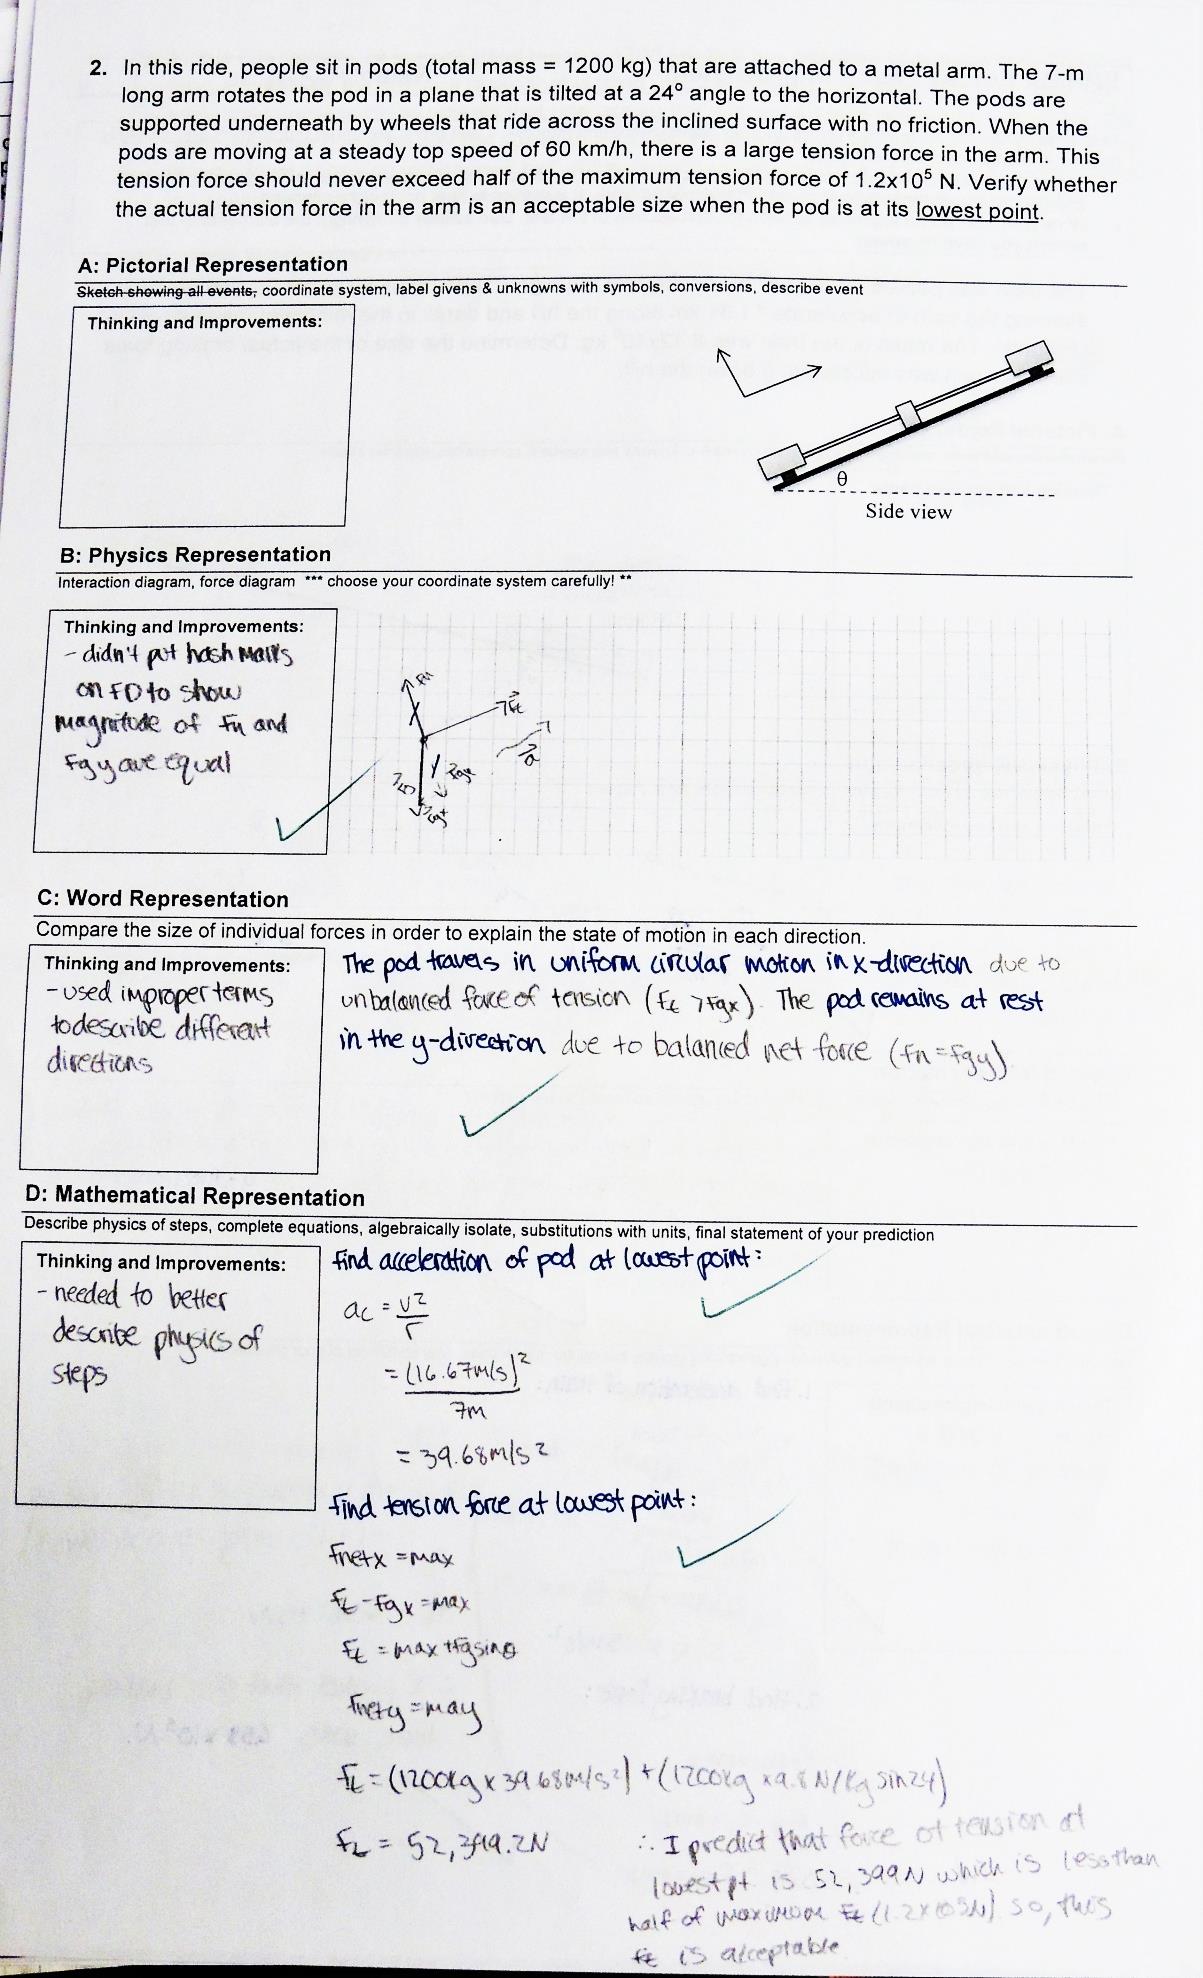 2. In this ride, people sit in pods (total mass = 1200 kg) that are attached to a metal arm. The 7-m
long arm rotates the pod in a plane that is tilted at a 24° angle to the horizontal. The pods are
supported underneath by wheels that ride across the inclined surface with no friction. When the
pods are moving at a steady top speed of 60 km/h, there is a large tension force in the arm. This
tension force should never exceed half of the maximum tension force of 1.2x10⁵ N. Verify whether
the actual tension force in the arm is an acceptable size when the pod is at its lowest point.
A: Pictorial Representation
Sketch showing all events, coordinate system, label givens & unknowns with symbols, conversions, describe event
Thinking and Improvements:
θ
Side view
B: Physics Representation
Interaction diagram, force diagram *** choose your coordinate system carefully! **
Thinking and Improvements:
- didn't put hash marks
on FD to show
magnitude of Fn and
Fgy are equal
Fn
Ft
a
Fgx
C: Word Representation
Compare the size of individual forces in order to explain the state of motion in each direction.
Thinking and Improvements:
- used improper terms
to describe different
directions
The pod travels in uniform circular motion in x-direction due to
unbalanced force of tension (Ft > Fgx). The pod remains at rest
in the y-direction due to balanced net force (Fn = Fgy)
D: Mathematical Representation
Describe physics of steps, complete equations, algebraically isolate, substitutions with units, final statement of your prediction
Thinking and Improvements:
- needed to better
describe physics of
steps
Find acceleration of pod at lowest point:
ac = v²
r
= (16.67m/s)²
7m
= 39.68m/s²
Find tension force at lowest point:
Fnetx = max
Ft - Fgx = max
Ft = max + Fgsinθ
Fnety = may
Ft = (1200kg x 39.68m/s²) + (1200kg x 9.8 N/kg sin24)
Ft = 52,399.2N
∴ I predict that force of tension at
lowest pt is 52,399N which is less than
half of maximum Ft (1.2x105N) so, this
Ft is acceptable